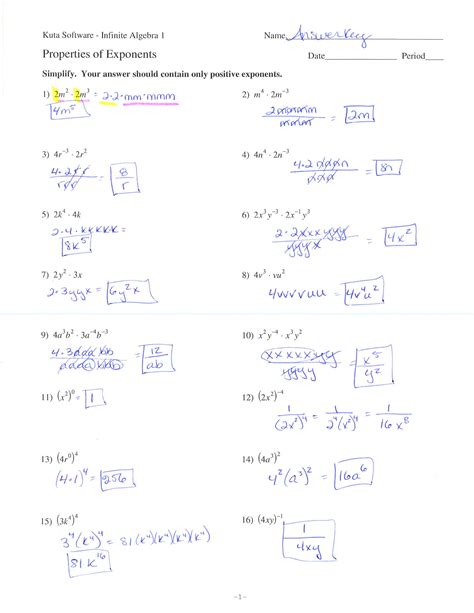 Kuta Software - Infinite Algebra 1 Name Answer Key
Properties of Exponents Date Period
Simplify. Your answer should contain only positive exponents.
1) 2m² · 2m³ = 2·2·mm·mmm
4m⁵
2) m⁴ · 2m⁻³
2mmmm / mmm = 2m
3) 4r⁻³ · 2r²
4·2rr / rrr = 8/r
4) 4n⁴ · 2n⁻³
4·2nnnn / nnn = 8n
5) 2k⁴ · 4k
2·4·kkkkk =
8k⁵
6) 2x³y⁻³ · 2x⁻¹y³
2·2xxxyyy / yyyx = 4x²
7) 2y² · 3x
2·3yyx = 6y²x
8) 4v³ · vu²
4vvvvuu = 4v⁴u²
9) 4a³b² · 3a⁻⁴b⁻³
4·3aaabb / aaaabbb = 12/ab
10) x²y⁻⁴ · x³y²
xxxxxyy / yyyy = x⁵/y²
11) (x²)⁰ = 1
12) (2x²)⁻⁴
1/(2x²)⁴ = 1/2⁴(x²)⁴ = 1/16x⁸
13) (4r⁰)⁴
(4·1)⁴ = 256
14) (4a³)²
4²(a³)² = 16a⁶
15) (3k⁴)⁴
3⁴(k⁴)⁴ = 81(k⁴)(k⁴)(k⁴)(k⁴)
81k¹⁶
16) (4xy)⁻¹
1/4xy
-1-